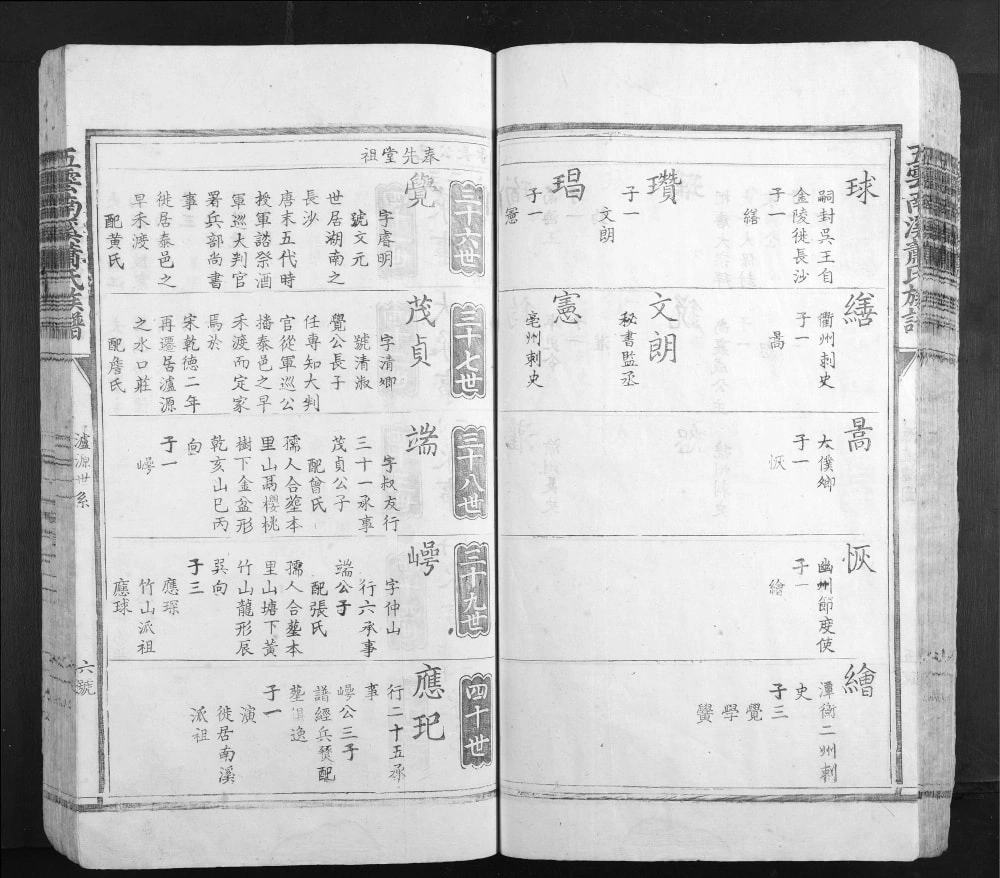 球
嗣封吳王自
金陵徙長沙
子一
繕
瓚
子一
文朗
琩
子一
憲
繕
衢州刺史
子一
暠
文朗
秘書監丞
憲
亳州刺史
暠
太僕卿
子一
恢
恢
幽州節度使
子一
繪
繪
潭衡二州刺
史
子三
覺
學
黌
五雲南溪蕭氏族譜
奉先堂祖
三十六世
覺
字睿明
號文元
世居湖南之
長沙
唐末五代時
授軍諮祭酒
軍巡大判官
署兵部尚書
事
徙居泰邑之
早禾渡
配黃氏
三十七世
茂貞
字清卿
號清淑
覺公長子
任專知大判
官從軍巡公
播泰邑之早
禾渡而定家
焉於
宋乾德二年
再遷居瀘源
之水口莊
配詹氏
三十八世
端
字叔友行
三十一承事
茂貞公子
配曾氏
孺人合塟本
里山禹櫻桃
樹下金盆形
乾亥山巳丙
向
子一
㟧
三十九世
字仲山
行六承事
端公子
配張氏
孺人合塟本
里山塘下黃
竹山龍形辰
巽向
子三
應琛
竹山派祖
應球
四十世
應玘
行二十五承
事
公三子
譜經兵燹配
塟俱逸
子一
演
徙居南溪
派祖
五雲南溪蕭氏族譜
瀘源世系
六號